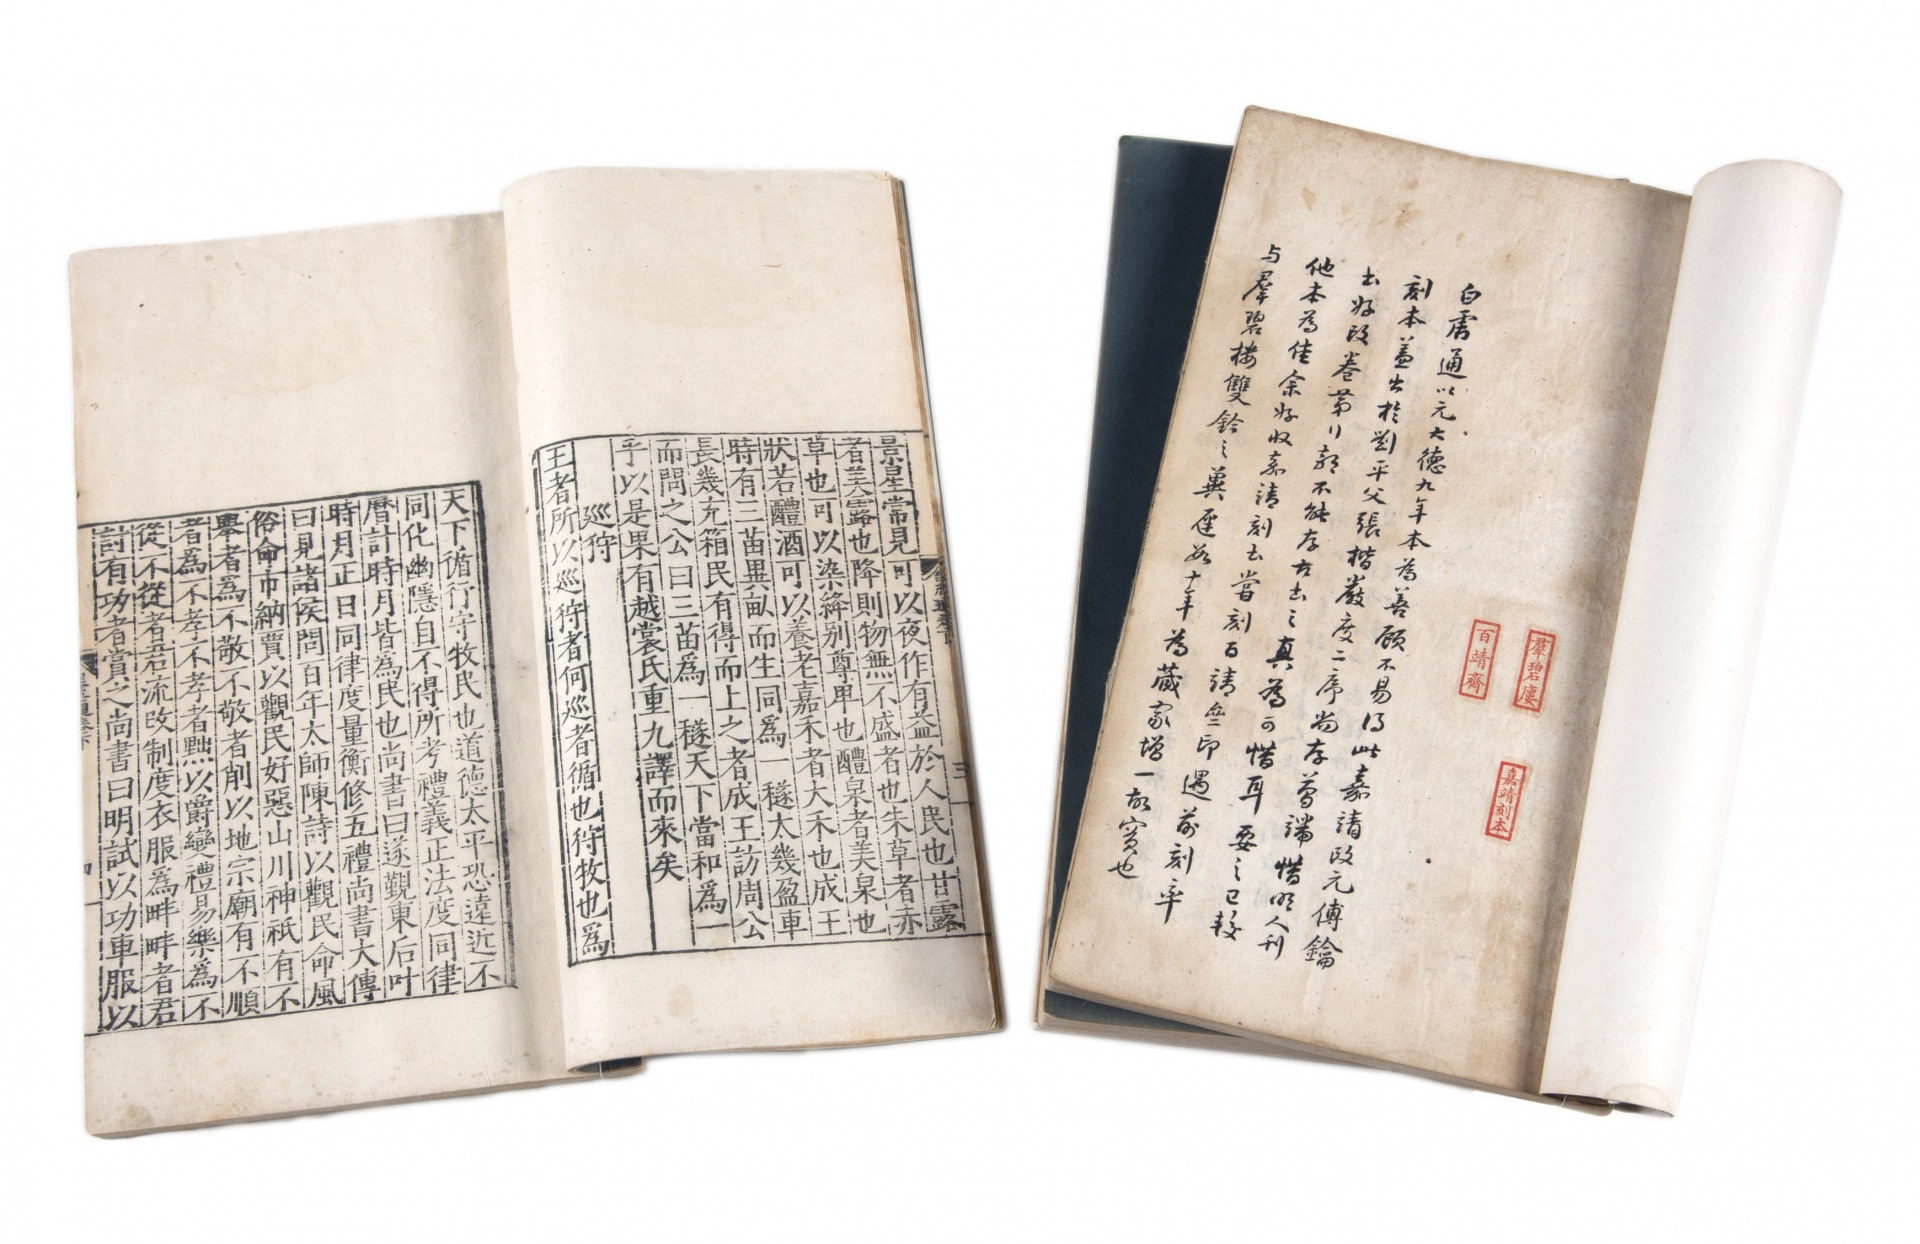 白虎通以元大德九年本為善顧不易得此嘉靖改元傅鑰
刻本蓋出於劉平父張楷嚴度二序尚存首端惜明人刊
书好改卷第行款不能存古书之真為可惜耳要之已較
他本為佳余好收嘉靖刻书嘗刻百靖齋印遇前刻率
与羣碧樓雙鈐之冀十年為藏家增一故實也
羣碧廔
百靖齋
嘉靖刻本
景星常見可以夜作有益於人民也甘露
者美露也降則物無不盛者也朱草者赤
草也可以染絳别尊卑也醴泉者美泉也
狀若醴酒可以養老嘉禾者大禾也成王
時有三苗異畝而生同為一穟太幾盈車
長幾充箱民有得而上之者成王訪周公
而問之公曰三苗為一穟天下當和為一
乎以是果有越裳氏重九譯而來矣
巡狩
王者所以巡狩者何巡者循也狩牧也為
天下循行守牧民也道德太平恐遠近不
同化幽隱自不得所考禮義正法度同律
曆計時月皆為民也尚書曰遂覲東后叶
時月正日同律度量衡修五禮尚書大傳
曰見諸侯問百年太師陳詩以觀民命風
俗命市納賈以觀民好惡山川神祇有不
舉者為不敬不敬者削以地宗廟有不順
者為不孝不孝者黜以爵變禮易樂為不
從不從者君流改制度衣服為畔畔者君
討有功者賞之尚書曰明試以功車服以